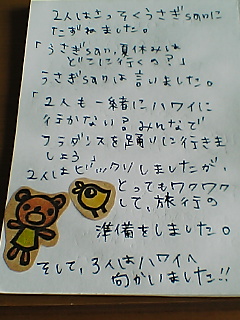 2人はさっそくうさぎsanに
たずねました。
「うさぎsan,夏休みは
どこに行くの？」
うさぎsanは言いました。
「2人も一緒にハワイに
行かない？みんなで
フラダンスを踊りに行きま
しょう
2人はビックリしましたが、
とってもワクワク
して、旅行の
準備をしました。
そして、3人はハワイへ
向かいました!!